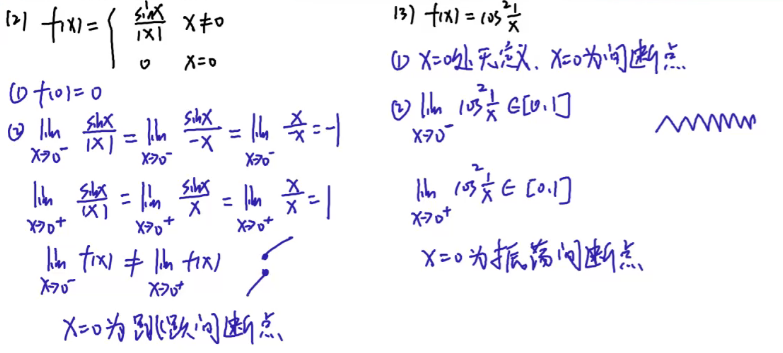 (2) f(x)= { sinx/|x| x≠0
0 x=0
① f(0)=0
② lim x→0⁻ sinx/|x| = lim x→0⁻ sinx/-x = lim x→0⁻ x/-x = -1
lim x→0⁺ sinx/|x| = lim x→0⁺ sinx/x = lim x→0⁺ x/x = 1
lim x→0⁻ f(x) ≠ lim x→0⁺ f(x)
x=0为跳跃间断点
(3) f(x)=cos² 1/x
① x=0处无定义、x=0为间断点
② lim x→0⁻ cos² 1/x ∈[0,1]
lim x→0⁺ cos² 1/x ∈ [0,1]
x=0为振荡间断点